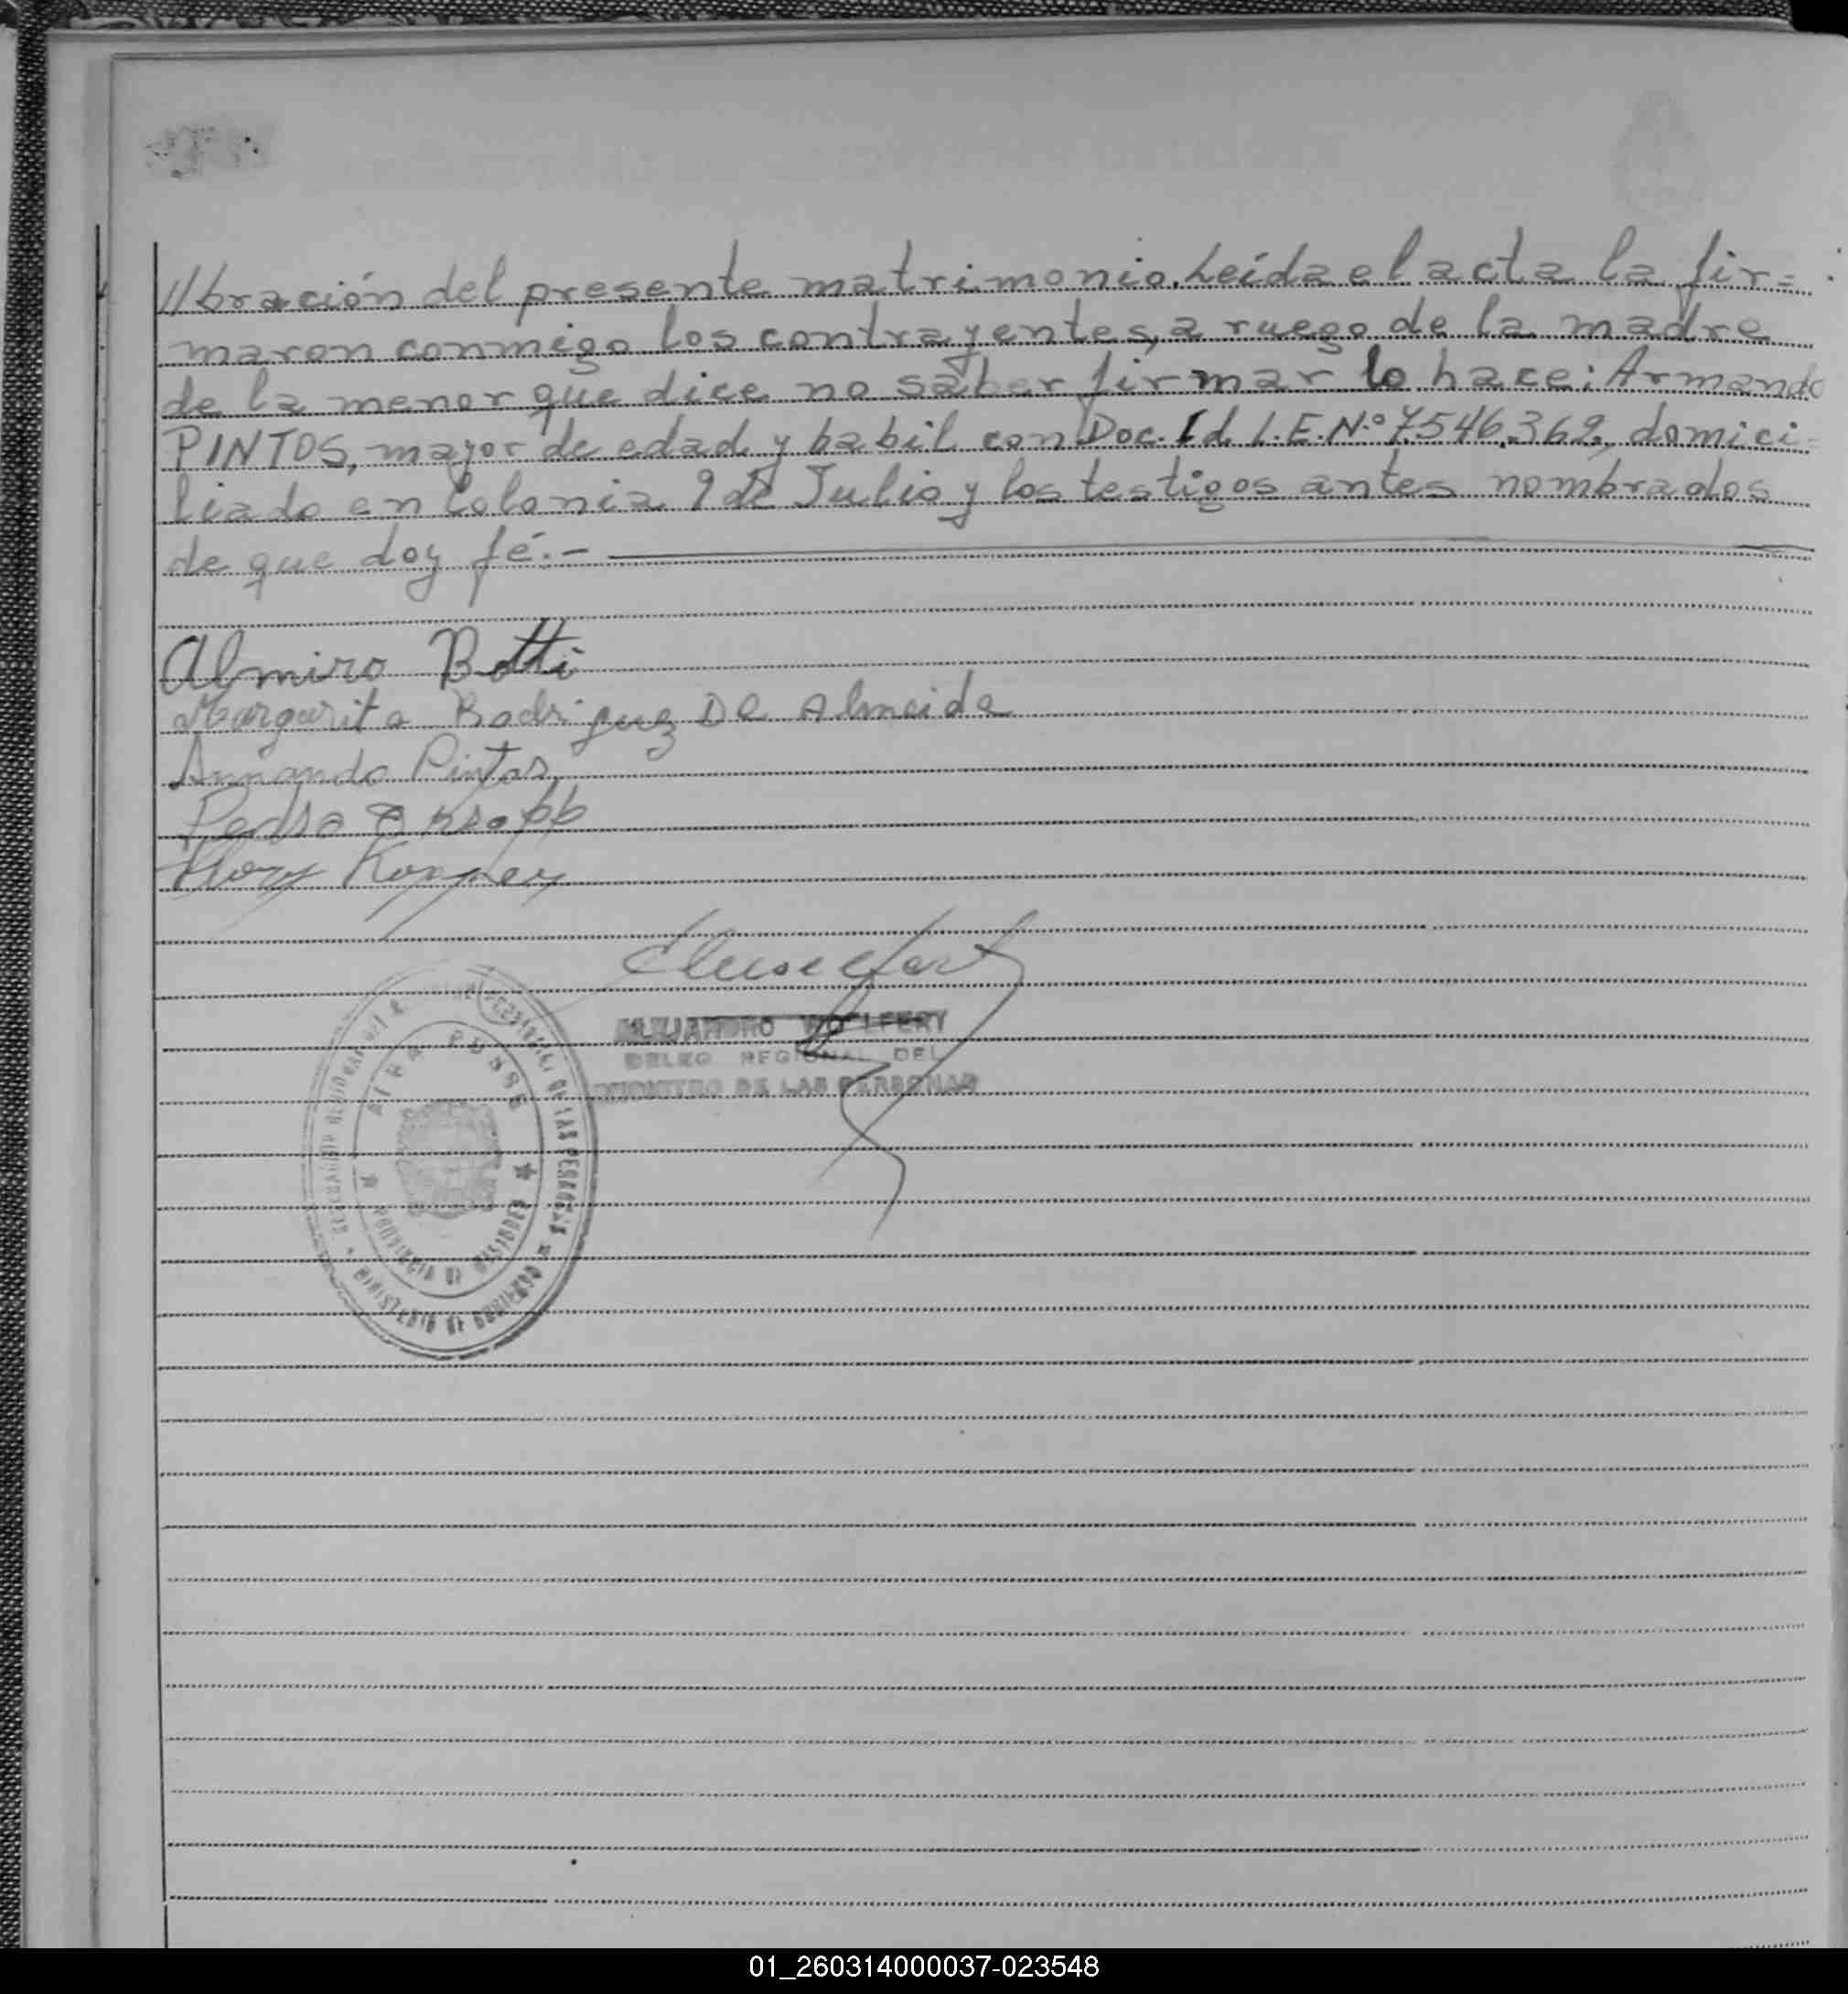 //bración del presente matrimonio. Leída el acta la fir=
maron conmigo los contrayentes, a ruego de la madre
de la menor que dice no saber firmar lo hace: Armando
PINTOS, mayor de edad y habil con Doc. Id. L.E.N.º 7.546.369, domici=
liado en Colonia 9 de Julio y los testigos antes nombrados
de que doy fé.-
Almiro Botti
Margarita Rodriguez De Almeida
Armando Pintos
Pedro Kropp
ALEJANDRO WOLFERY
DELEG REGIONAL DEL
REGISTRO DE LAS PERSONAS
DE LAS PERSONAS
MINISTERIO DE GOBIERNO
PROVINCIA DE MISIONES
01_260314000037-023548